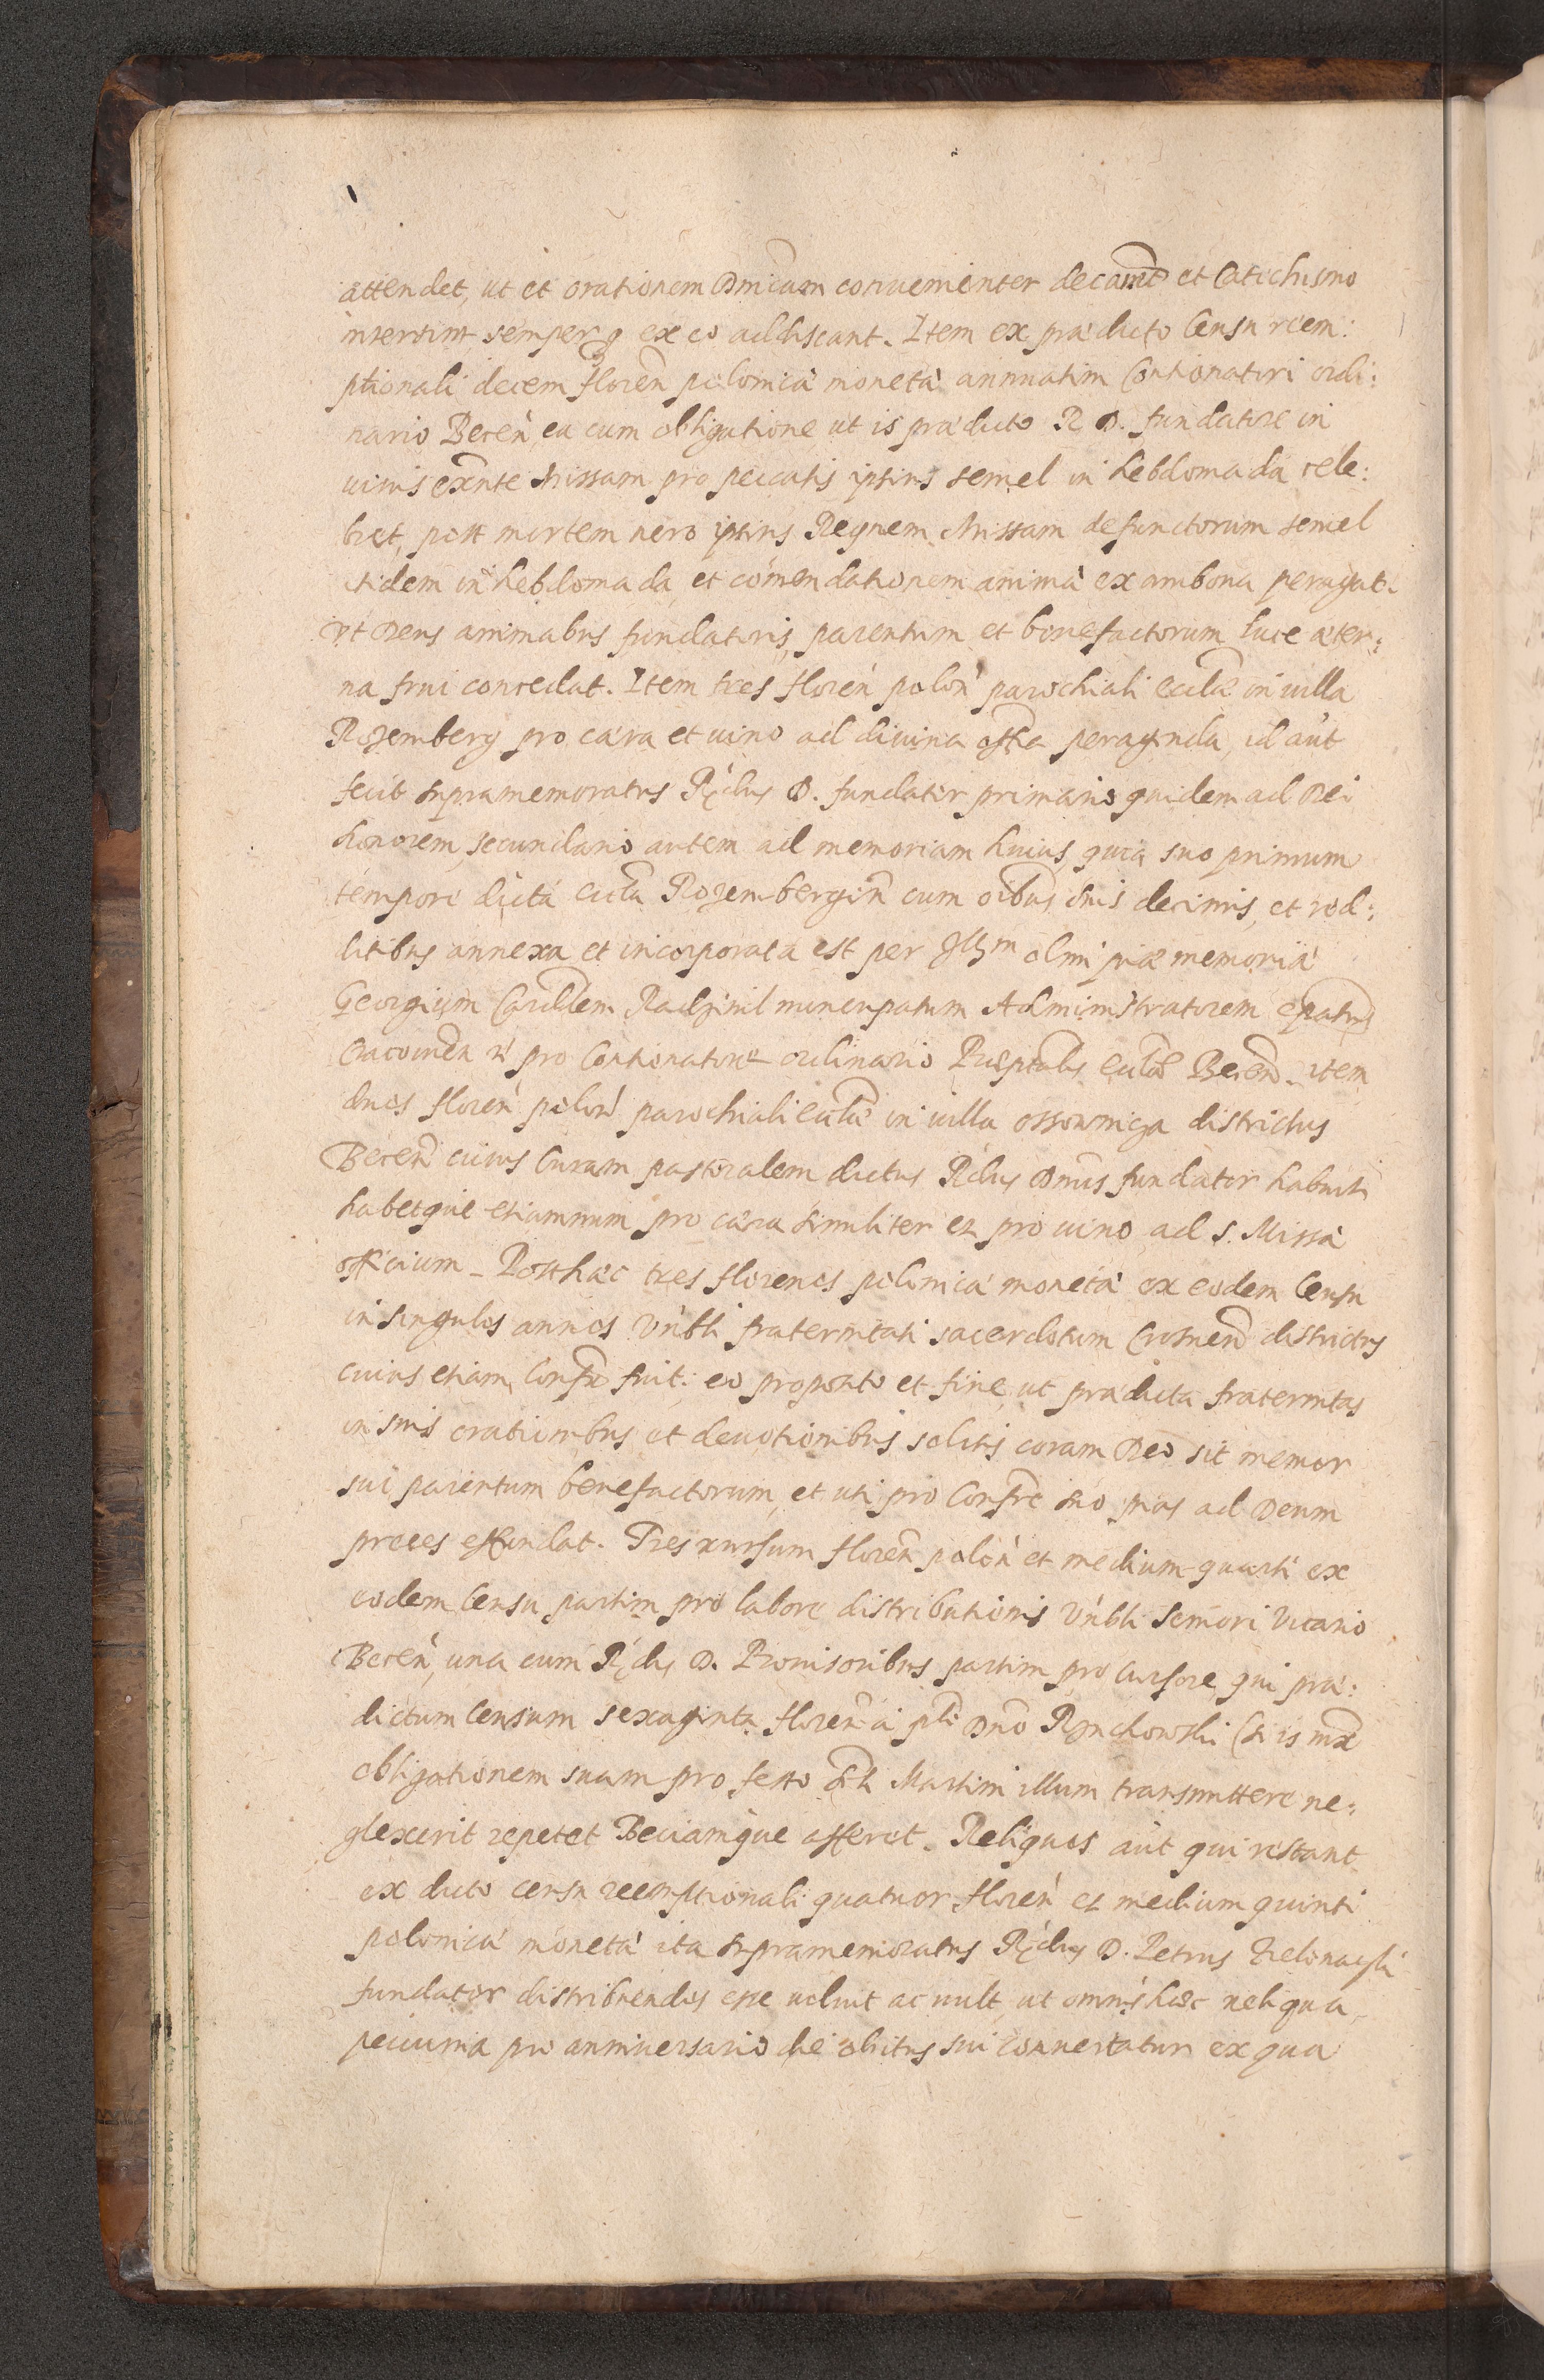 attendet, ut et orationem Dnicam conuenienter decant et Catechismo
intersint, semperq ex eo addiscant. Item ex prædicto Censu reem:
ptionali decem floren polonicæ monetæ annuatim Contionatori ordi:
nario Becen, ea cum obligatione ut is prædicto R D. fundatore in
uiuis exnte Missam pro peccatis ipsius semel in hebdomada cele:
bret, post mortem uero ipsius Requiem Missam defunctorum semel
itidem in hebdomada, et comendationem animæ ex ambona peragat.
Vt Deus animabus fundatoris, parentum et benefactorum luce æter:
na frui concedat. Item tres floren polon parochiali eccliæ in uilla
Rozemberg pro cæra et uino ad diuina offia peragenda, id aut
fecit supramemoratus Rdus D. fundator primario quidem ad Dei
honorem, secundario autem ad memoriam huius, quia suo primum
tempore dicta eccla Rozembergen cum oibus suis decimis, et red:
ditibus annexa et incorporata est per Illm olim piæ memoriæ
Georgium Cardlem Radziuil nuncupatum Administratorem Epatus
Cracouien pro Contionatore ordinario Præptalis eccliæ Becen. item
duos floren polon parochiali eccliæ in uilla ossownicza districtus
Becen cuius Curam pastoralem dictus Rdus Dnus fundator habuit
habetque etiamnum pro cæra similiter et pro uino ad S. Missæ
officium. Posthæc tres florenos polonicæ monetæ ex eodem Censu
in singulos annos Vnbli fraternitati sacerdotum Crosnen districtus
cuius etiam Confr fuit: eo proposito et fine, ut prædicta fraternitas
in suis orationibus et deuotionibus solitis coram Deo sit memor
sui parentum benefactorum, et uti pro Confre suo pias ad Deum
preces effundat. Tres rursum floren polon et medium quarti ex
eodem Censu partim pro labore distributionis Vnbli Seniori Vicario
Becen, una cum Rdis D. Prouisoribus partim pro Cursore, qui præ:
dictum Censum sexaginta floren a Dno Rynchowski (si is
obligationem suam pro festo Sti Martini illum transmittere ne:
glexerit repetet Beciamque afferet. Reliquos aut qui restant
ex dicto censu reemptionali quatuor floren et medium quinti
polonicæ monetæ ita supramemoratus Rdus D. Petrus
fundator distribuendos esse uoluit ac uult, ut omnis hæc reliqua
pecunia pro anniuersario die obitus sui conuertatur ex qua